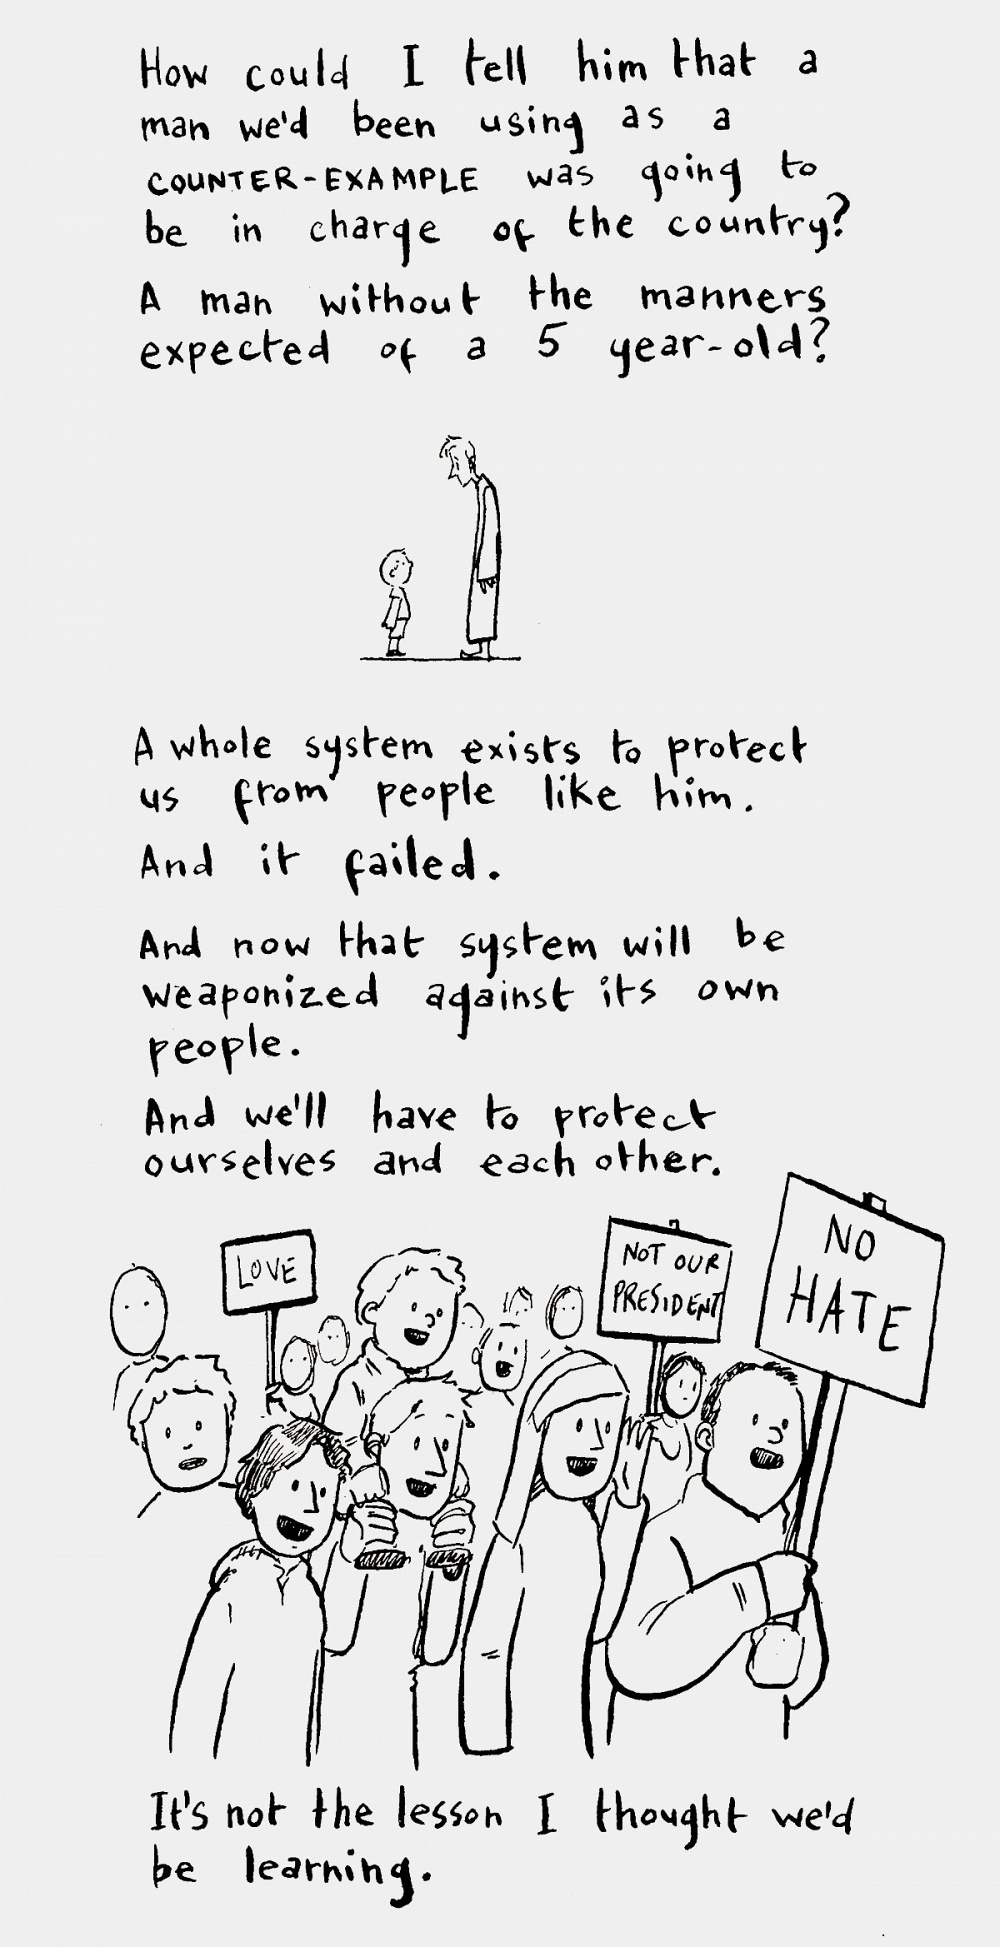 How could I tell him that a
man we'd been using as a
COUNTER-EXAMPLE was going to
be in charge of the country?
A man without the manners
expected of a 5 year-old?
A whole system exists to protect
us from people like him.
And it failed.
And now that system will be
weaponized against its own
people.
And we'll have to protect
ourselves and each other.
LOVE
NOT OUR
PRESIDENT
NO
HATE
It's not the lesson I thought we'd
be learning.